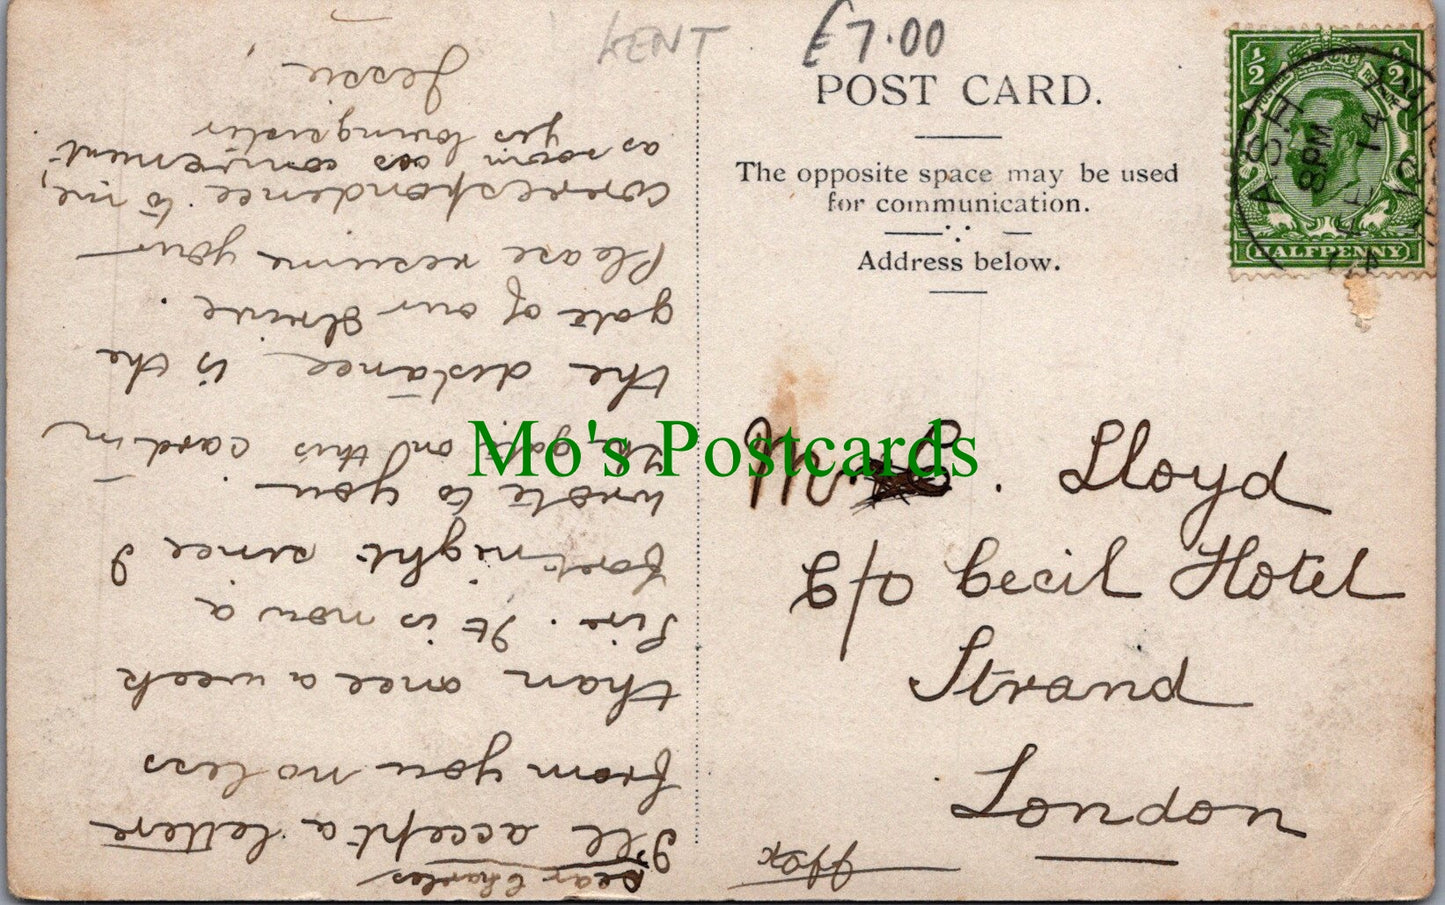 KENT
£7.00
POST CARD.
The opposite space may be used
for communication.
Address below.
½ ½
HALFPENNY
ASH
8PM
14
12
Mr C. Lloyd
C/o Cecil Hotel
Strand
London
Dear Charles
I'll accept a letter
from you no less
than once a week
Sir. It is now a
fortnight since I
wrote to you
gate on this card in
the distance is the
gate of our drive.
Please resume your
correspondence to me,
as soon as convenient
yrs loving sister
Jessie
Mo's Postcards